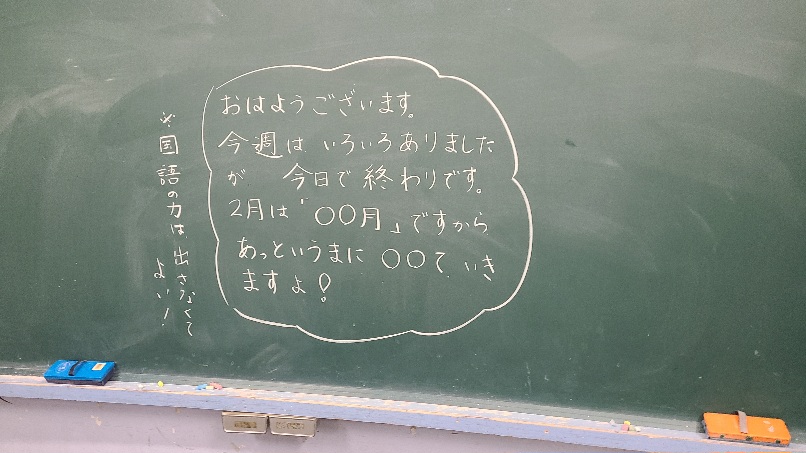 おはようございます。
今週は いろいろありました
が 今日で終わりです。
2月は「〇〇月」ですから
あっというまに 〇〇て いき
ますよ!
※国語の力は出さなくて
よい!